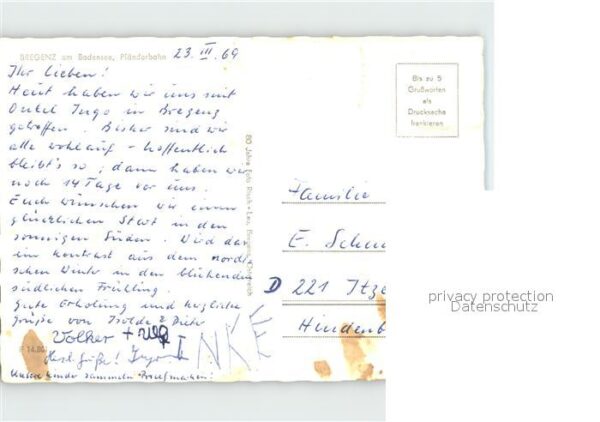 BREGENZ am Bodensee, Pfänderbahn
23. III. 69
Ihr Lieben!
Heut haben wir uns mit
Onkel Ingo in Bregenz
getroffen. Bisher sind wir
alle wohlauf - hoffentlich
bleibt's so, dann haben wir
noch 14 Tage vor uns.
Euch wünschen wir einen
glücklichen Start in den
sonnigen Süden. Wird das
ein Kontrast aus dem nordi-
schen Winter in den blühenden
südlichen Frühling.
Gute Erholung und herzliche
Grüße von Isolde & Dieter
Volker +
Herzl. Grüße! Ingo
INKE
Unsere Kinder sammeln Briefmarken!
80 Jahre Foto Risch-Lau, Bregenz, Österreich
Bis zu 5
Grußworten
als
Drucksache
frankieren
Familie
E. Schu
D 221 Itze
Hindenb
privacy protection
Datenschutz